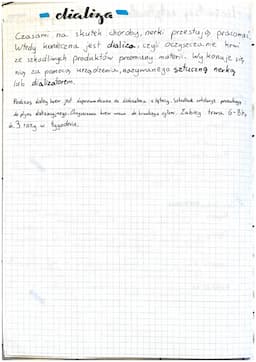 dializa
Czasami na skutek choroby, nerki przestają pracować.
Wtedy konieczna jest dializa, czyli oczyszczenie krwi
ze szkodliwych produktów przemiany materii. Wykonuje się
nią za pomocą urządzenia, nazywanego sztuczną nerką
lub dializatorem.
Podczas dializy krew jest doprowadzana do dializatora z tętnicy. Szkodliwe substancje przenikają
do płynu dializacyjnego. Oczyszczona krew wraca do krwiobiegu żyłami. Zabieg trwa 6-8h,
ok. 3 razy w tygodniu.